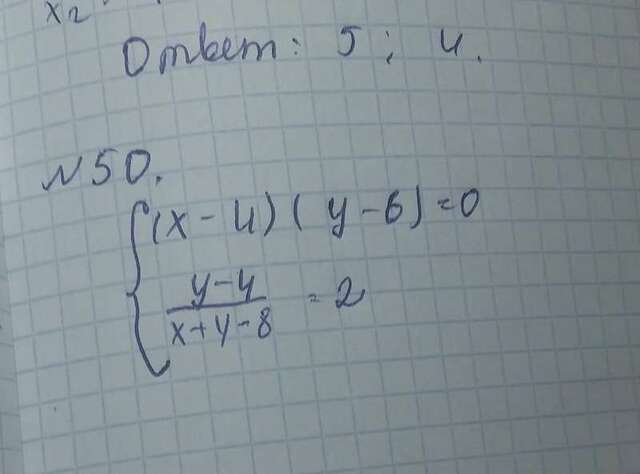 x2
Ответ: 5; 4.
N50.
(x-4)(y-6)=0
y-4
x+y-8 = 2